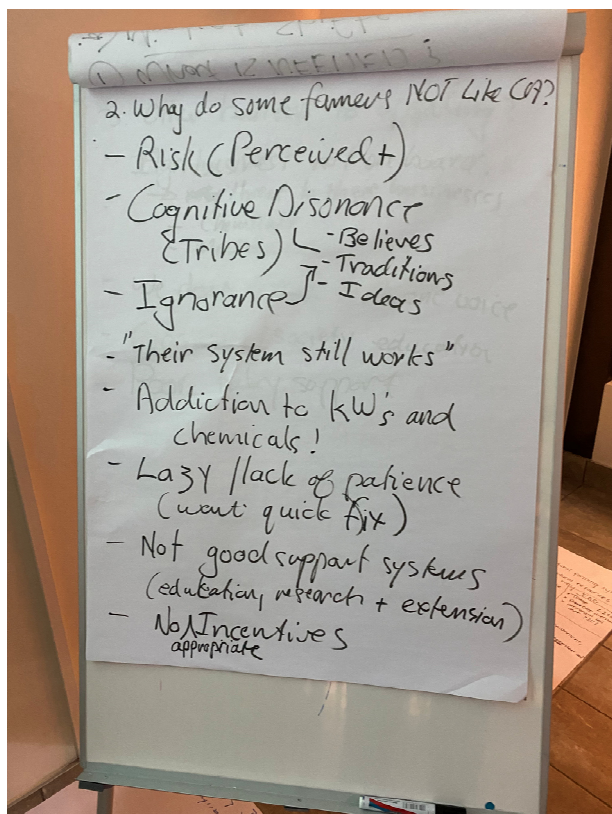 ① What is needed?
2. Why do some famers NOT Like CA?
- Risk (Perceived +)
- Cognitive Disonance
(Tribes) - Believes
- Traditions
- Ignorance - Ideas
- "Their system still works"
- Addiction to kW's and
chemicals!
- Lazy / lack of patience
(want quick fix)
- Not good support systems
(education, research + extension)
- No ^ Incentives
appropriate